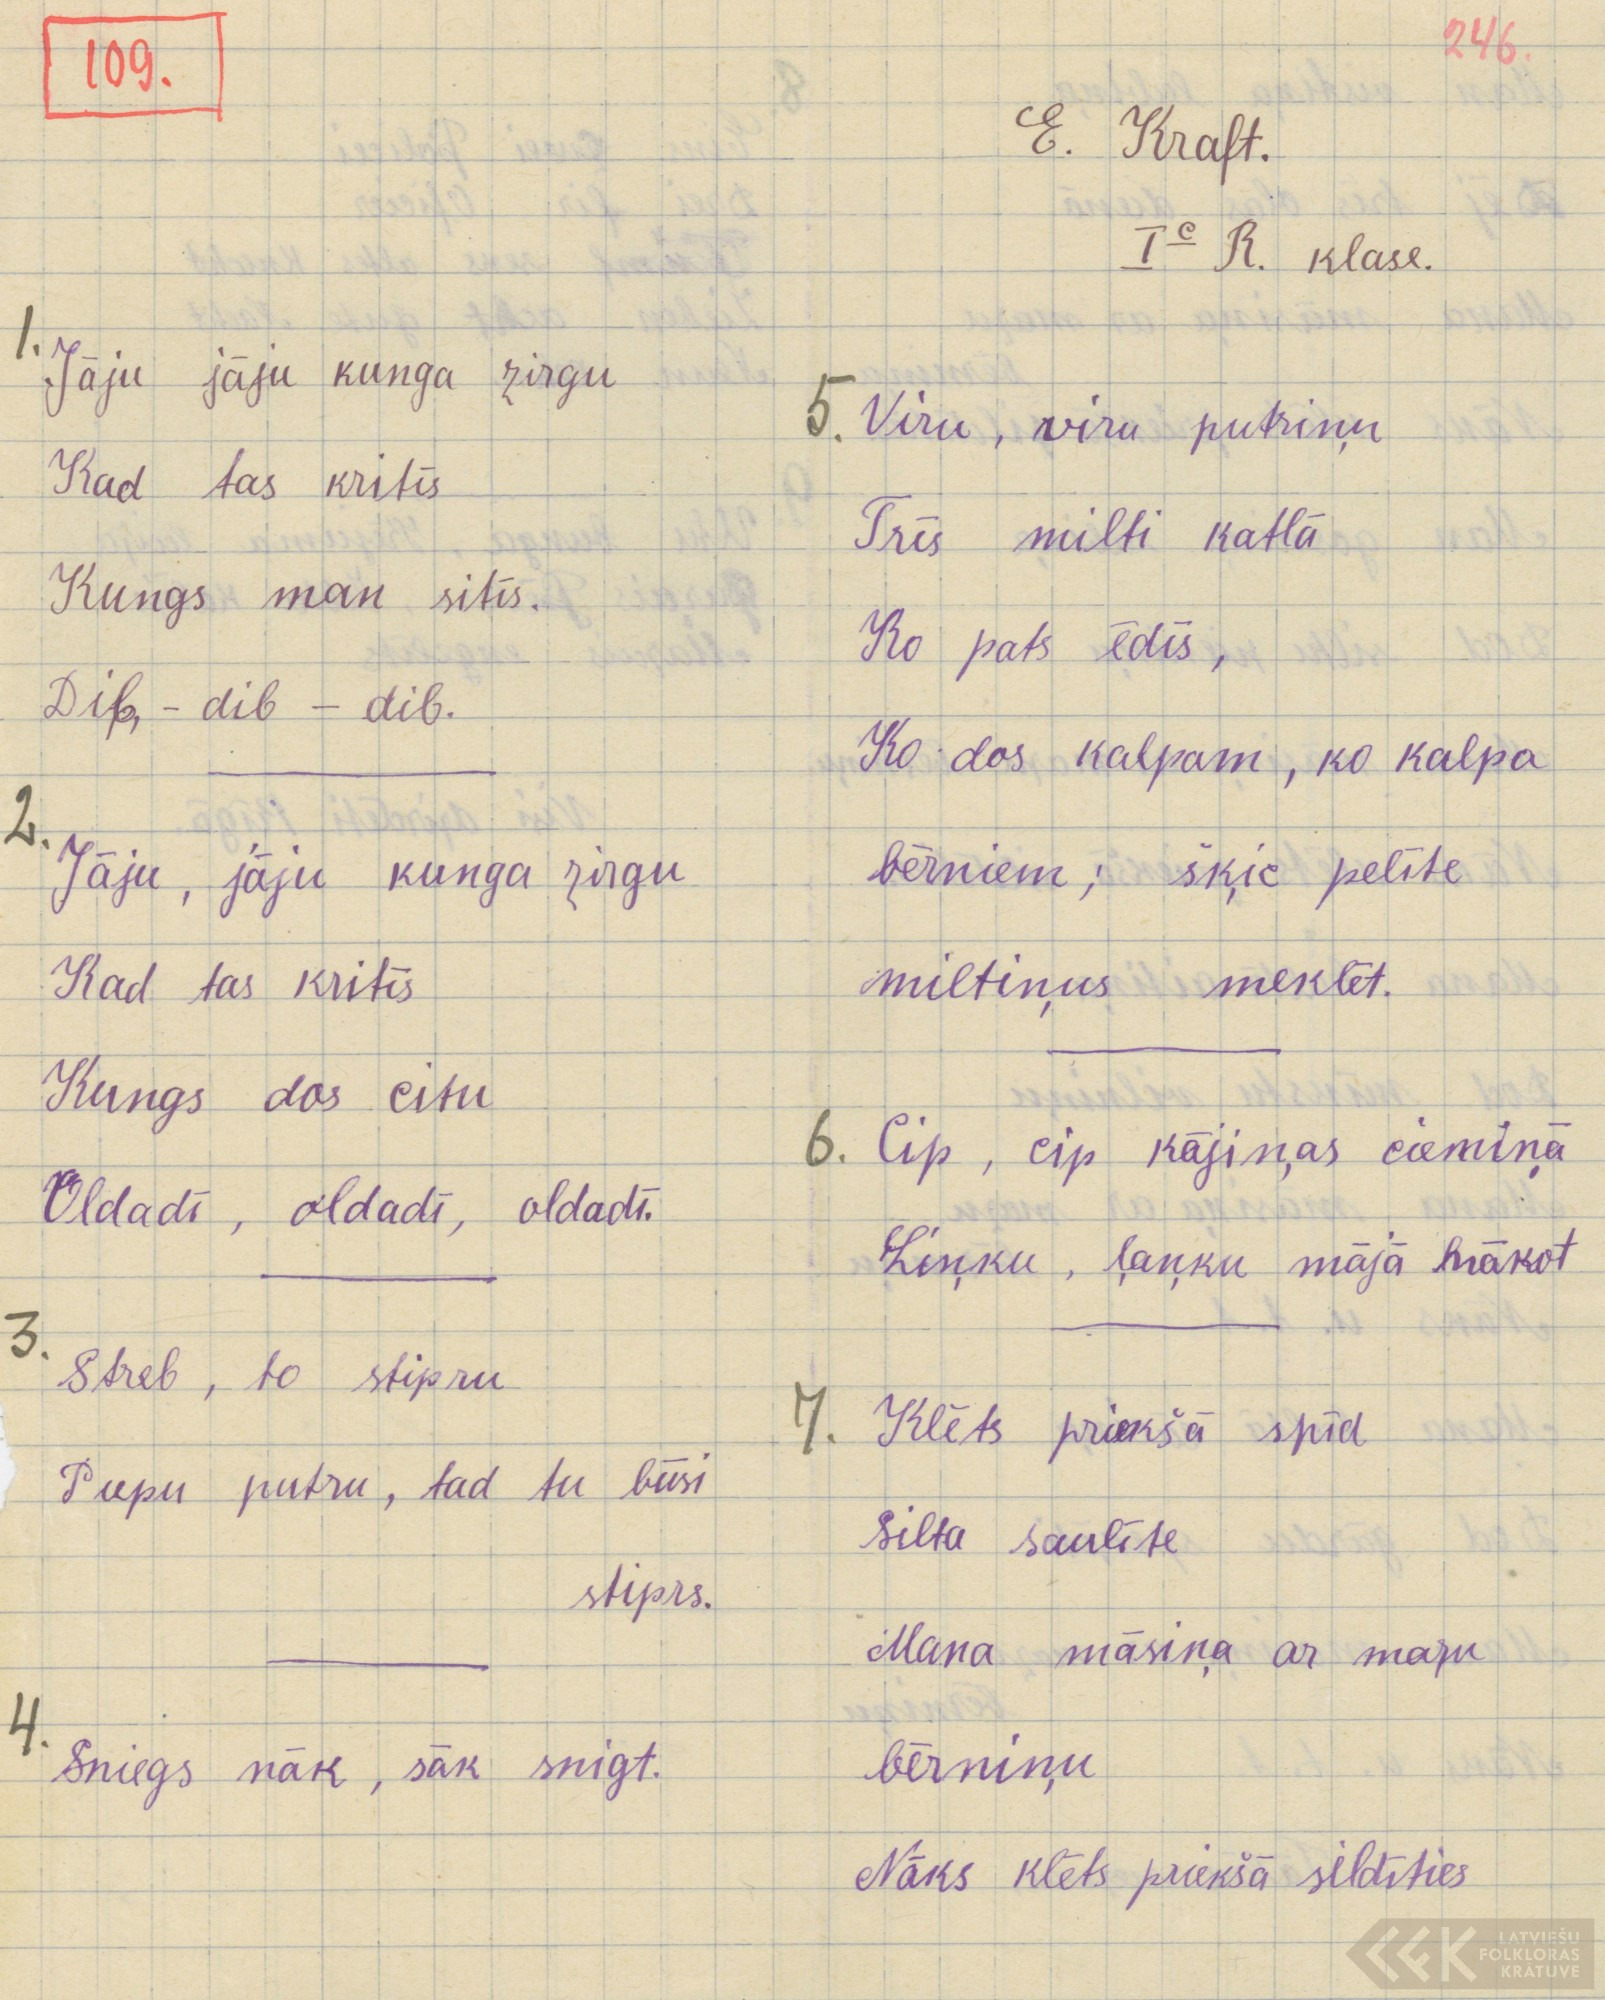 109.
246.
E. Kraft.
I c R. klase.
1.
Jāju jāju kunga zirgu
Kad tas kritīs
Kungs man sitīs.
Dib, - dib - dib.
2.
Jāju, jāju kunga zirgu
Kad tas kritīs
Kungs dos citu
Oldadī, oldadī, oldadī.
3.
Streb, to stipru
Pupu putru, tad tu būsi
stiprs.
4.
Sniegs nāk, sāk snigt.
5. Viru, viru putriņu
Trīs milti katlā
Ko pats ēdīs,
Ko dos kalpam, ko kalpa
bērniem; šķic pelīte
miltiņus meklēt.
6. Cip, cip kājiņas ciemiņā
Liņķu, ļaņķu mājā nākot
7. Klēts priekšā spīd
Silta saulīte
Mana māsiņa ar mazu
bērniņu
Nāks klēts priekšā sildīties
LATVIEŠU
FOLKLORAS
KRĀTUVE